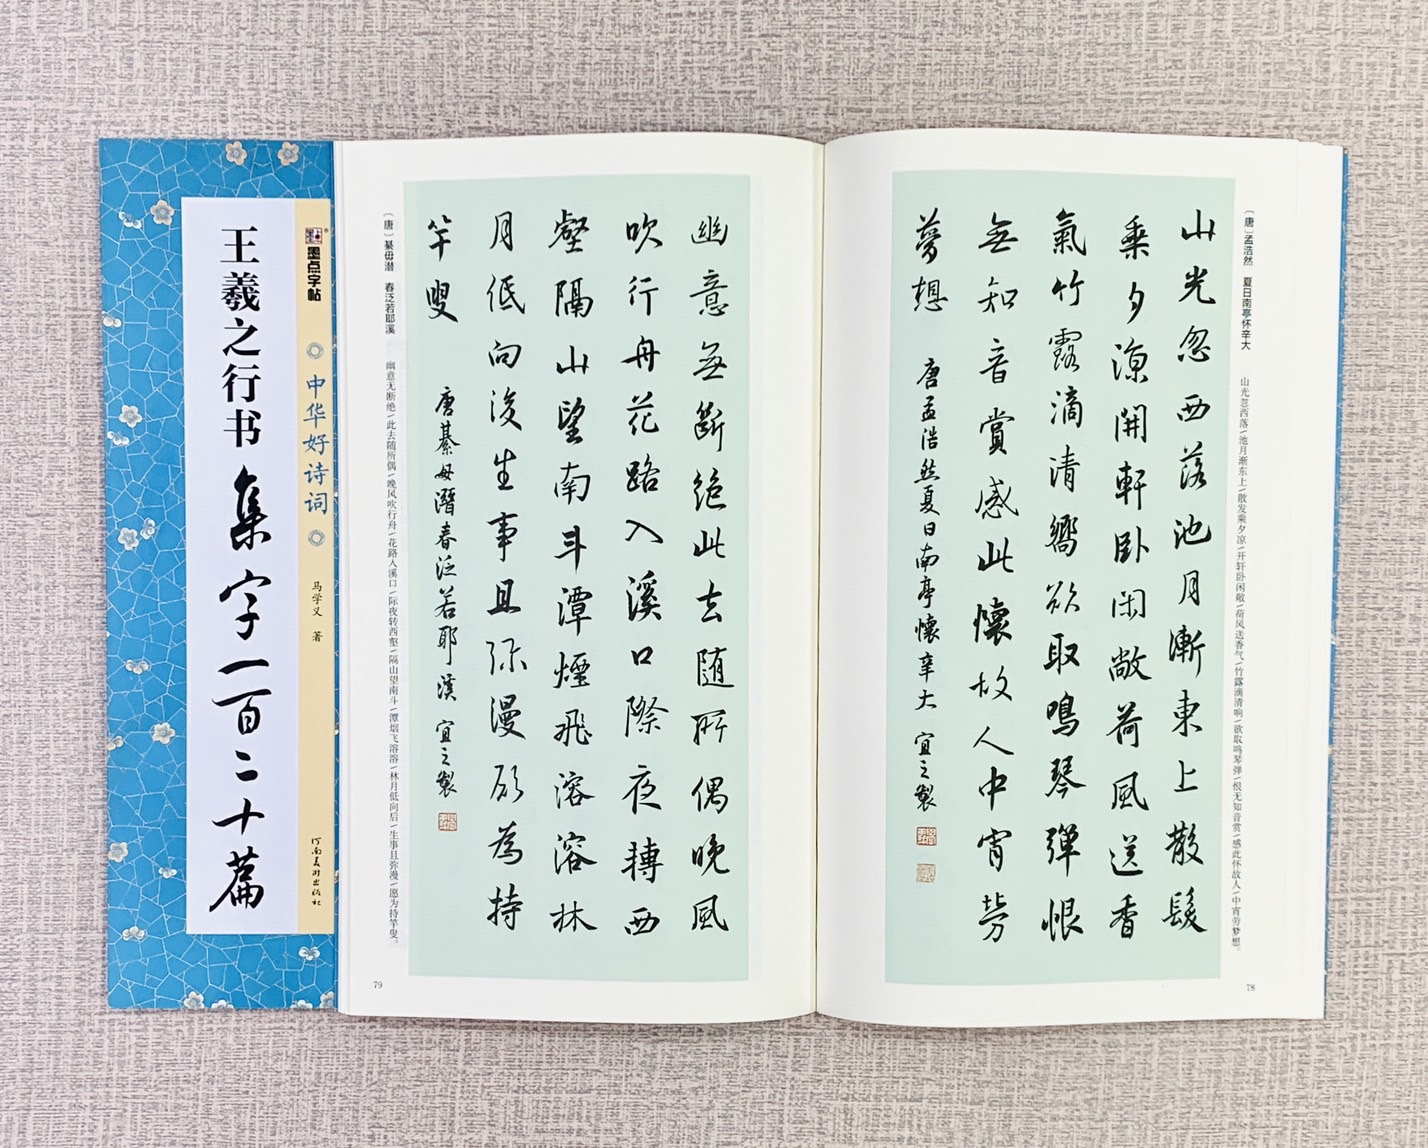 〔唐〕孟浩然 夏日南亭怀辛大
山光忽西落/池月渐东上/散发乘夕凉/开轩卧闲敞/荷风送香气/竹露滴清响/欲取鸣琴弹/恨无知音赏/感此怀故人/中宵劳梦想。
山光忽西落池月漸東上散髮
乘夕涼開軒卧閑敞荷風送香
氣竹露滴清響欲取鳴琴彈恨
無知音賞感此懷故人中宵勞
夢想
唐孟浩然夏日南亭懷辛大 宜之製
78
〔唐〕綦毋潜 春泛若耶溪
幽意无断绝/此去随所偶/晚风吹行舟/花路入溪口/际夜转西壑/隔山望南斗/潭烟飞溶溶/林月低向后/生事且弥漫/愿为持竿叟。
幽意無斷絕此去隨所偶晚風
吹行舟花路入溪口際夜轉西
壑隔山望南斗潭煙飛溶溶林
月低向後生事且弥漫願為持
竿叟
唐綦毋潛春泛若耶溪 宜之製
79
墨点字帖
中华好诗词
马学义 著
河南美术出版社
王羲之行书集字一百二十篇